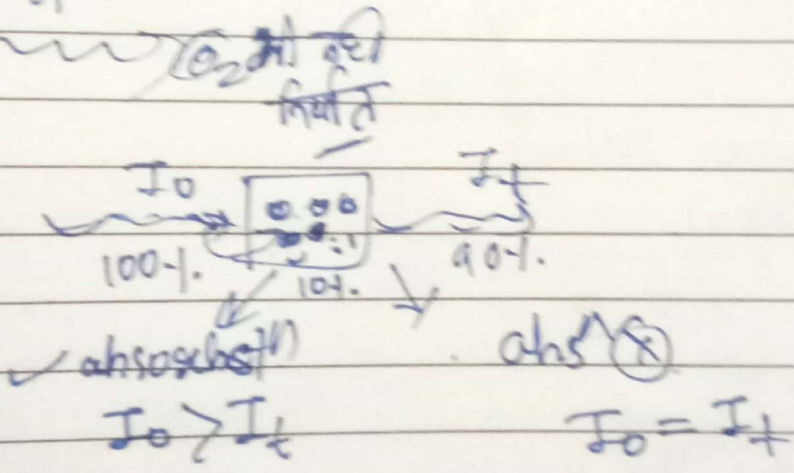 की दूरी
निर्यात
I₀ Iₜ
100% 10% 90%
✓ absorbstⁿ absⁿ ⓧ
I₀ > Iₜ I₀ = Iₜ